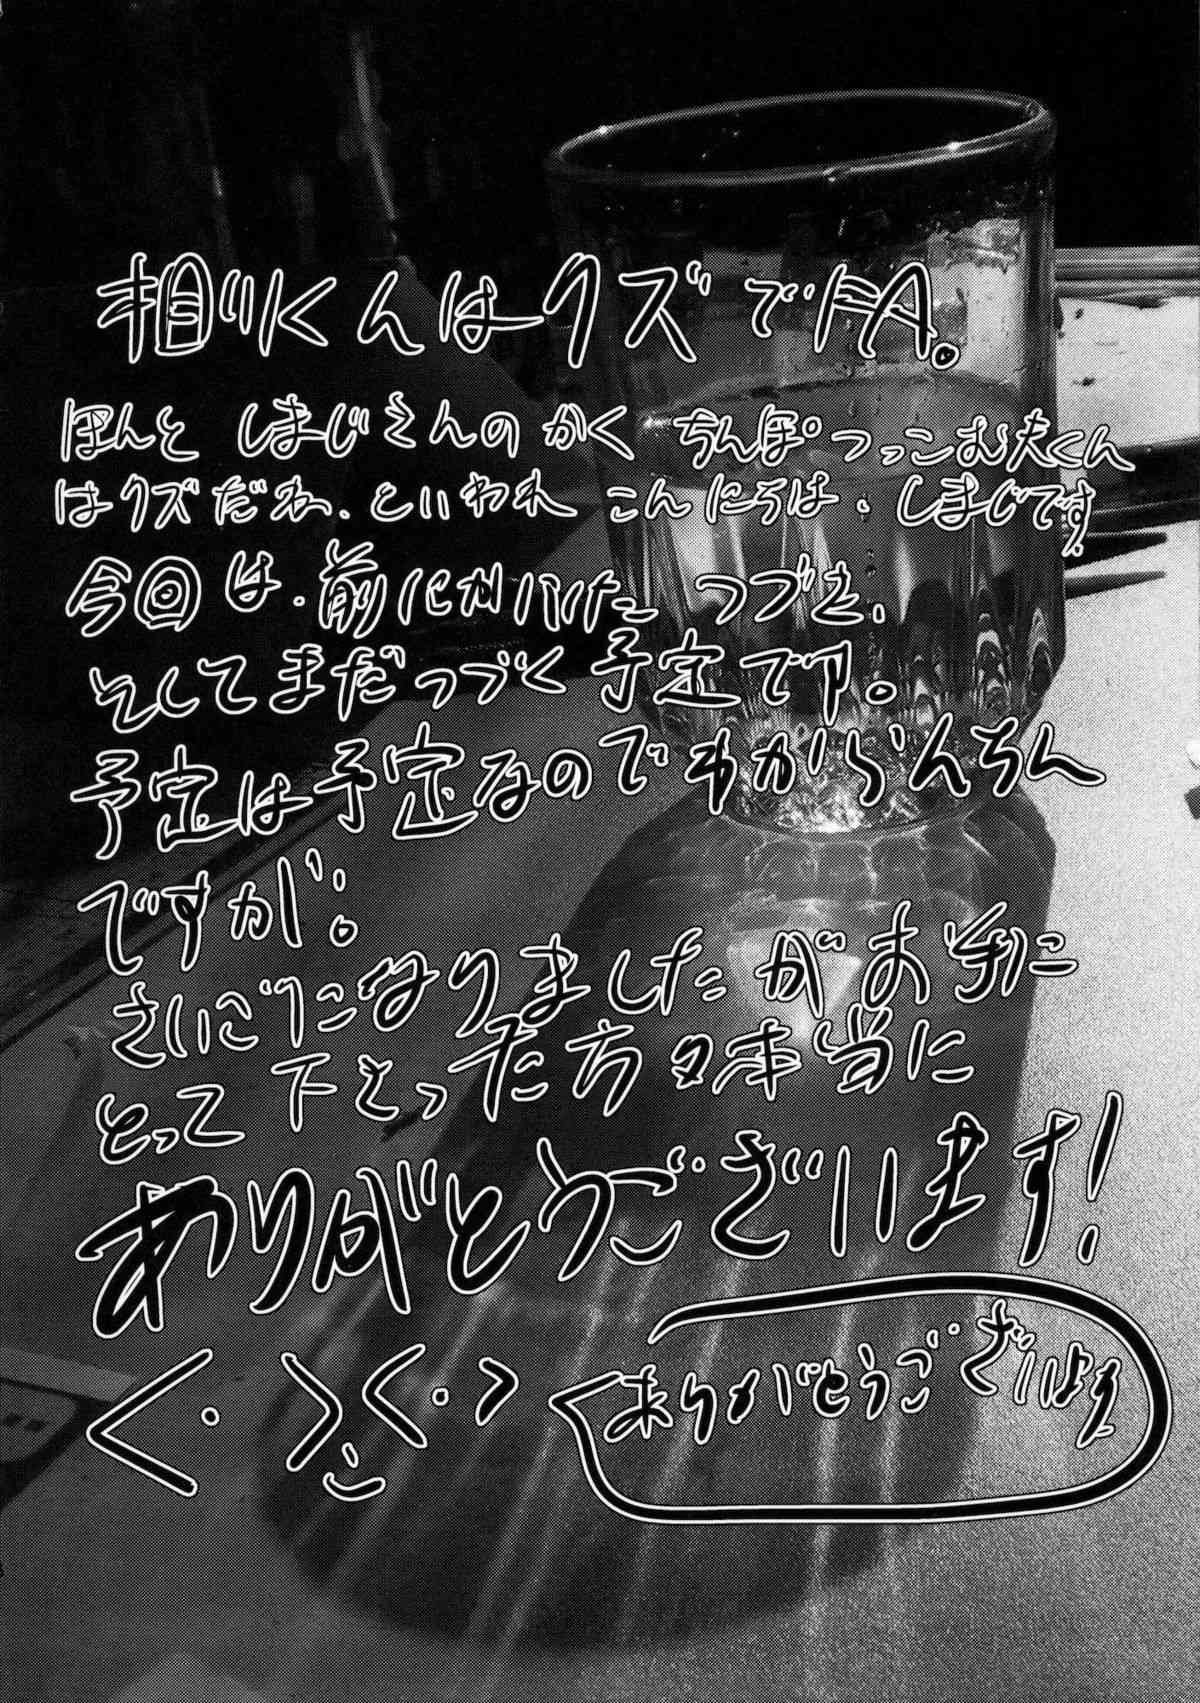 相川くんはクズでFA。
ほんと しまじさんの かく ちんぽ つっこむ夫くん
はクズだね、といわれ こんにちは、しまじです
今回は、前にかいた つづき、
そしてまだつづく予定です。
予定は予定なのでわからんちん
ですが。
さいごになりましたがお手に
とって下さった方々本当に
ありがとうございます!
ありがとうござい